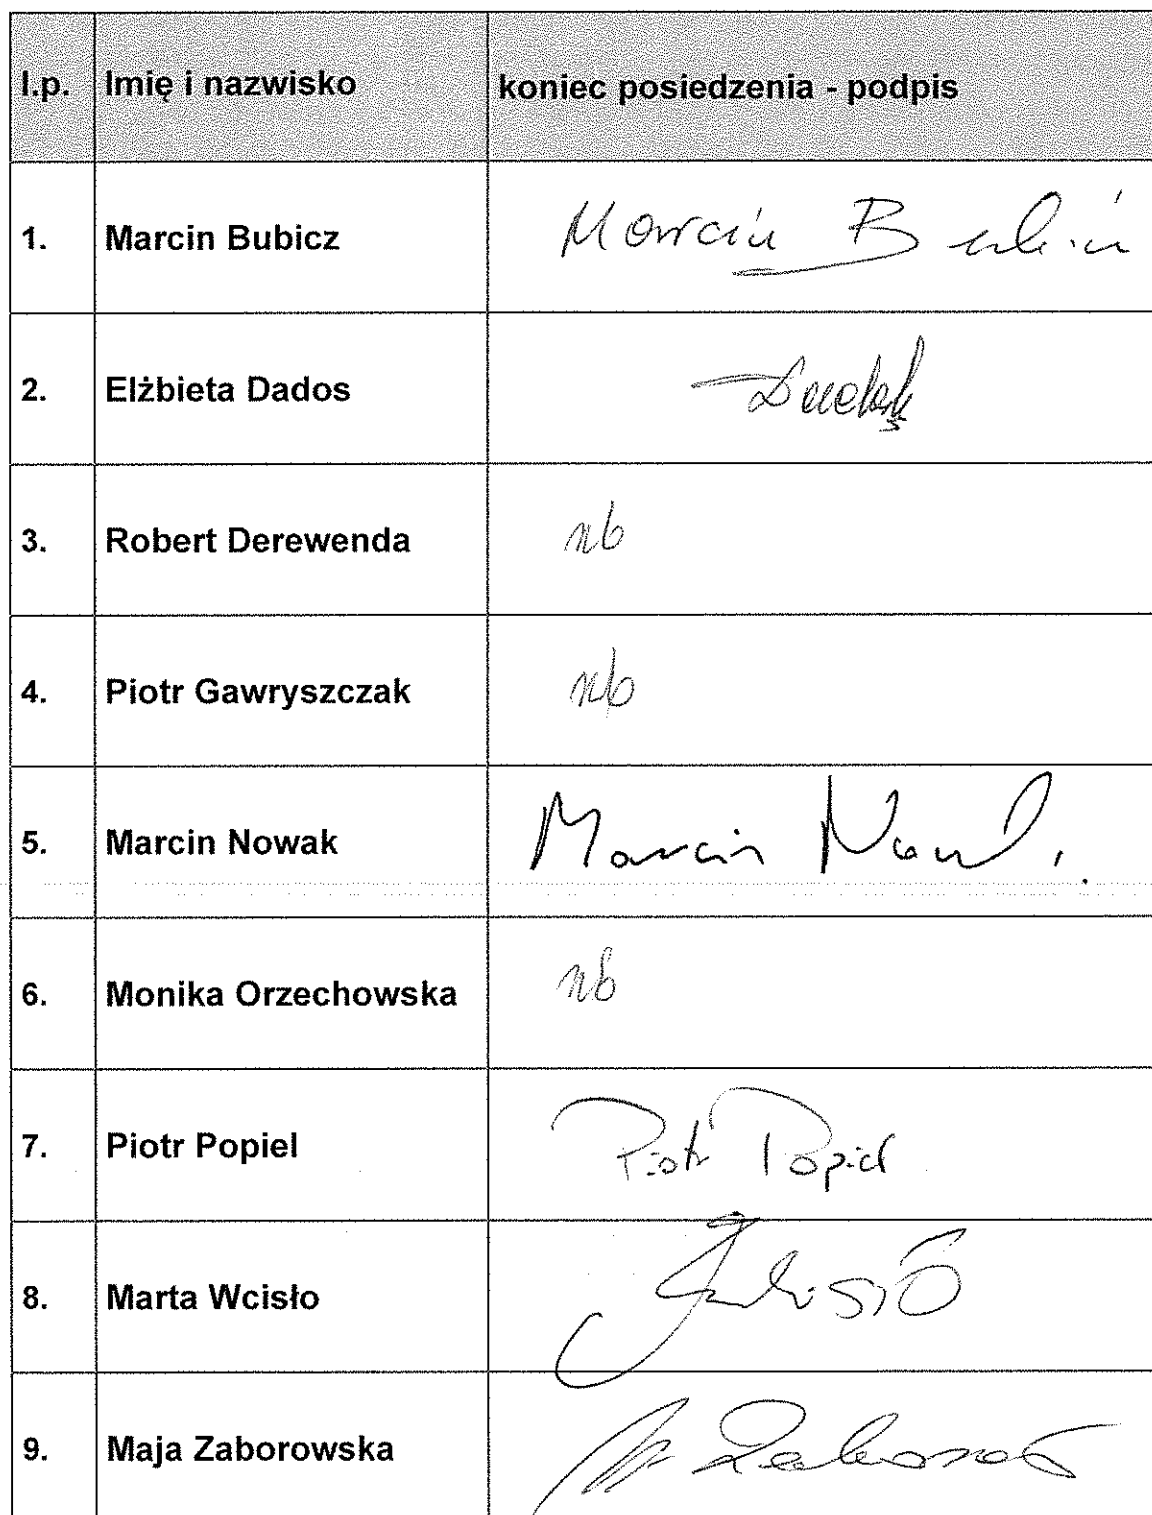 l.p. Imię i nazwisko koniec posiedzenia - podpis
1. Marcin Bubicz Marcin Bubicz
2. Elżbieta Dados
3. Robert Derewenda nb
4. Piotr Gawryszczak nb
5. Marcin Nowak Marcin Nowak
6. Monika Orzechowska nb
7. Piotr Popiel Piotr Popiel
8. Marta Wcisło
9. Maja Zaborowska